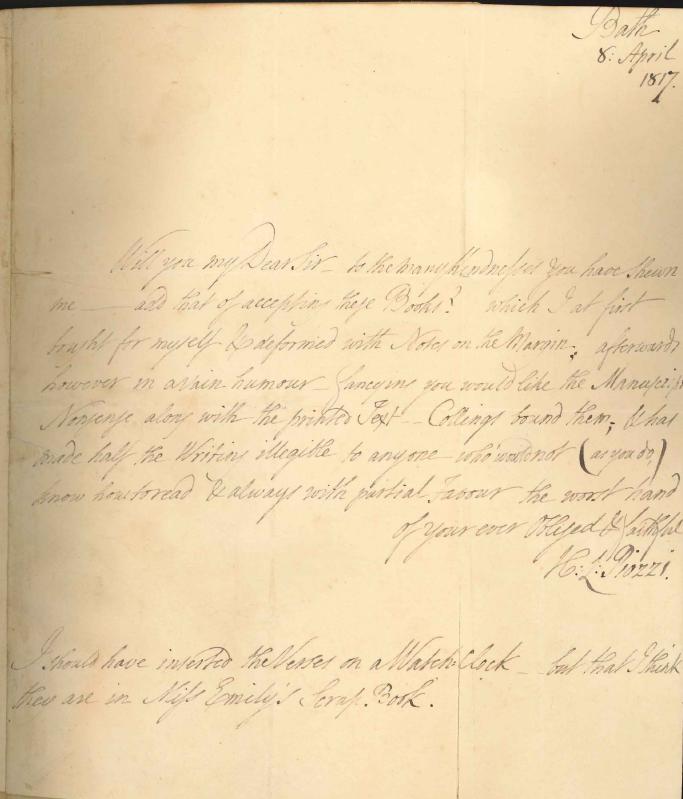 Bath
8: April
1817.
Will you my Dear Sir – to the many Kindnesses you have shewn
me — add that of accepting these Books? which I at first
bought for myself & deformed with Notes on the Margin; afterwards
however in a vain humour fancying you would like the Manuscript
Nonsense along with the printed Text – Collings bound them; & has
made half the Writing illegible to anyone who would not (as you do,)
know how to read & always with partial Favour the worst hand
of your ever Obliged & faithful
H: L: Piozzi.
I should have inserted the Verses on a Watch-Clock – but that I think
they are in Miss Emily's Scrap-Book.